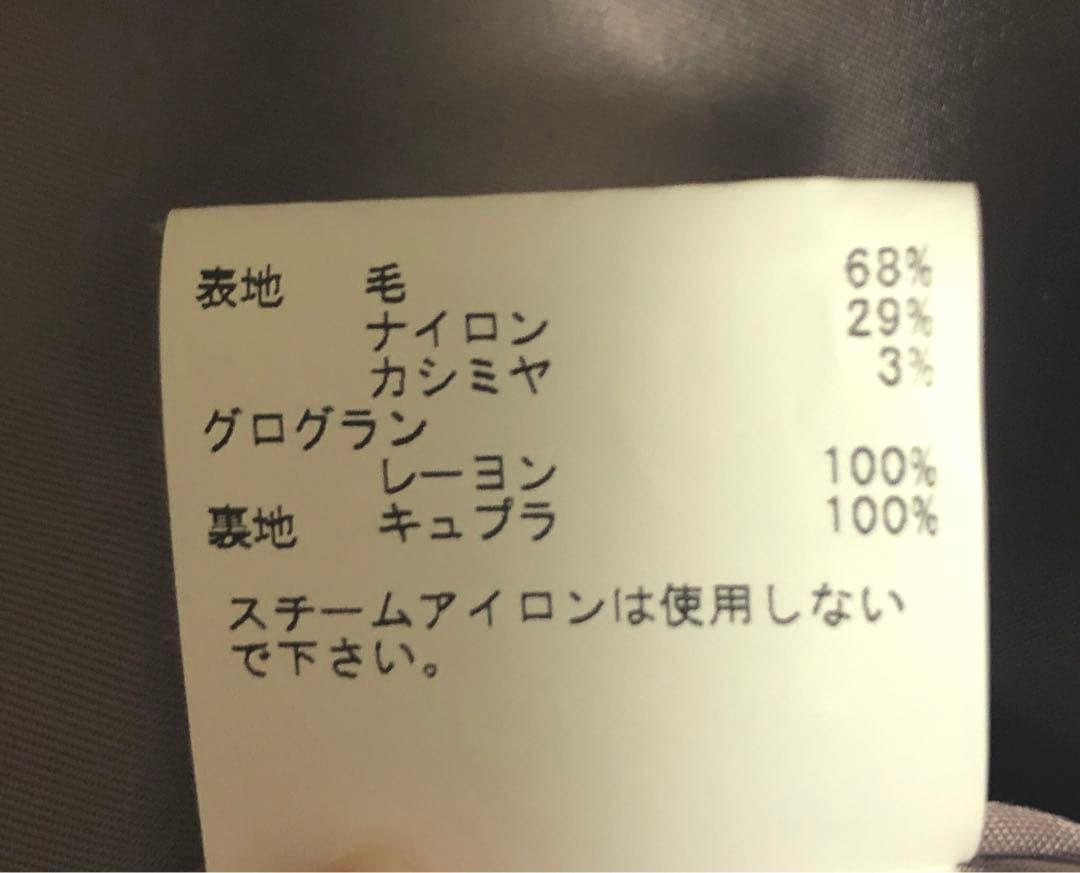 表地 毛 68%
ナイロン 29%
カシミヤ 3%
グログラン
レーヨン 100%
裏地 キュプラ 100%
スチームアイロンは使用しない
で下さい。